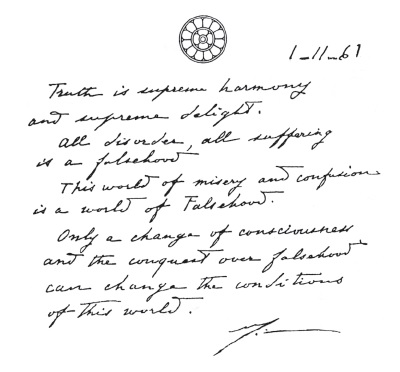 1-11-61
Truth is supreme harmony
and supreme delight.
All disorder, all suffering
is a falsehood
This world of misery and confusion
is a world of Falsehood.
Only a change of consciousness
and the conquest over falsehood
can change the conditions
of this world.